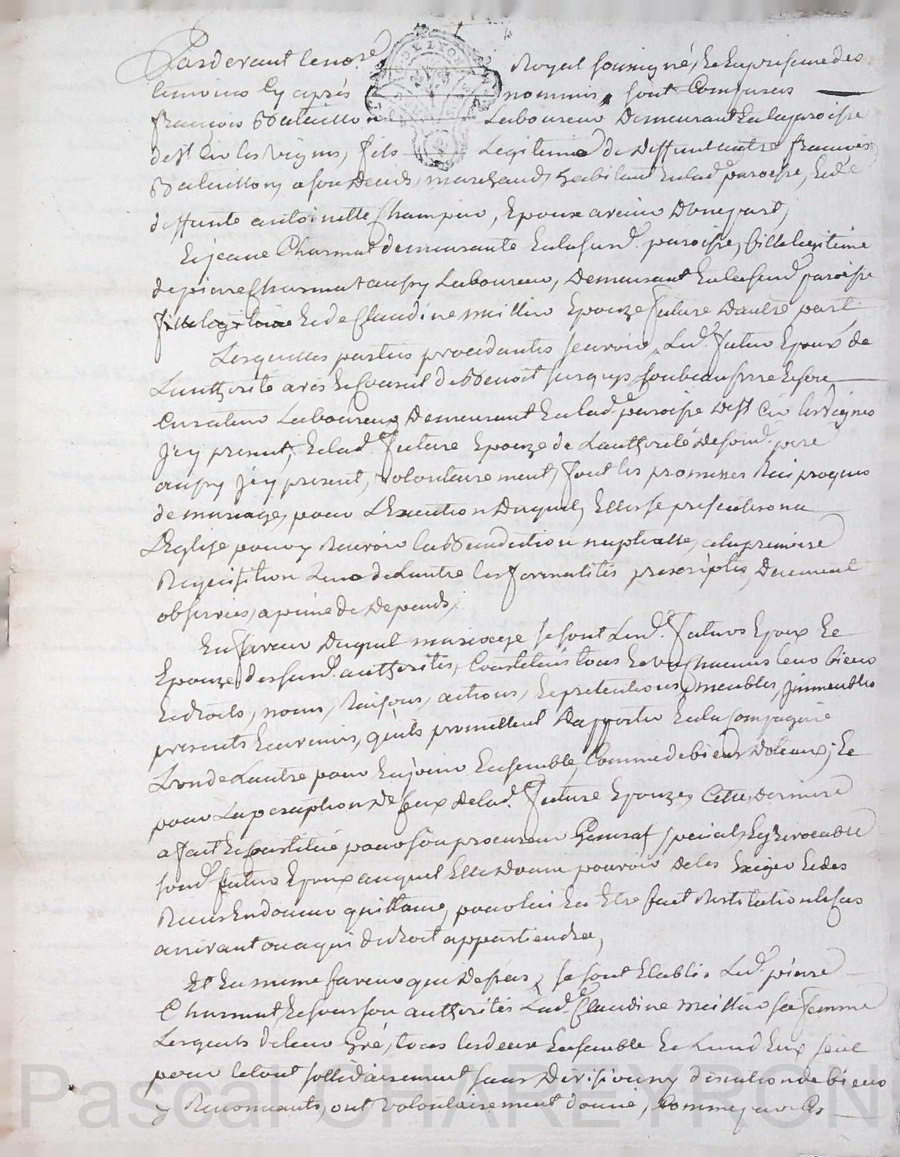 Pardevant le no.re Royal soussigné, et en presence des
temoins cy aprés nommés, sont comparus
françois Bataillon Laboureur Demeurant en la paroisse
de st Cir les vignes, fils Legitime de Deffunt autre françois
Bataillon, a son deceds, marchand, habitant en lad. paroisse, et de
deffunte antoinette Champin, Epoux avenir d'une part,
Et jeane Charmat demeurante en la susd. paroisse, fille legitime
de pierre Charmat aussy Laboureur, Demeurant en la susd. paroisse
et de Claudine meillier Epouze future d'autre part
Lesquelles parties procedantes sçavoir, Led. futur Epoux de
L'authorité avis et Conseil de Benoit son beau frere et son
Curateur Laboureur Demeurant en lad. paroisse de st Cir les Vignes
jcy present, et lad. future Epouze de L'authorité de sond. pere
aussy jcy present, volontairement, font les promesses reciproques
de mariage, pour L'Execution duquel, Elles se presenteront a
L'Eglise pour y Recevoir la Benediction nuptialle, a la premiere
Requisition L'une de L'autre les formalités prescriptes, deuement
observées, a peine de Depends,
En faveur duquel mariage se sont Lesd. futurs Epoux et
Epouze des susd. authorités, Constitués tous et un chacuns leur biens
et droits, noms, Raisons, actions, et pretentions, meubles, jmmeubles
presents et avenir, qu'ils promettent d'apporter en la Compagnie
L'un de L'autre pour En jouir Ensemble, Comme de biens dotaux; Et
pour La perception de Ceux de lad. future Epouze, Cette derniere
a fait et Constitué pour son procureur General special et jrrevocable
sond. futur Epoux auquel Elle donne pouvoir de les Exiger et des
Receus En donner quittance, pour lui En Etre fait Restitution le Cas
arrivant ou a qui de droit appartiendra,
Et En meme faveur que dessus, se sont Etablis Led. pierre
Charmat et sous son authorité Lad. Claudine meillier sa femme
Lesquels de leur Gré, tous les deux Ensemble et L'un d'Eux seul
pour le tout sollidairement sans Division ny discution de biens
y Renonçants, ont volontairement donné, Comme par Ces
Pascal CHAREYRON